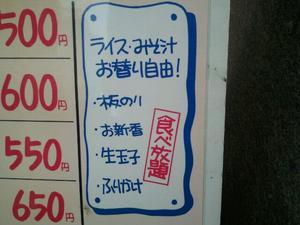 500円
600円
550円
650円
ライス・みそ汁
お替り自由!
・板のり
・お新香
・生玉子
・ふりかけ
食べ放題